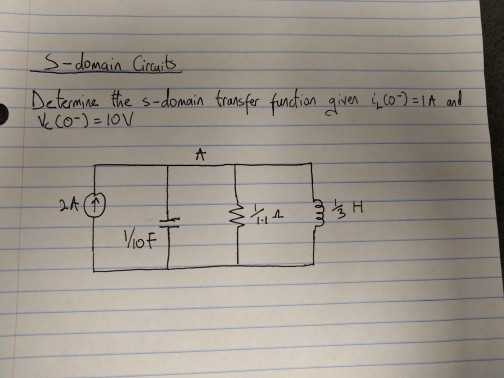 S-domain Circuits
Determine the s-domain transfer function given i_L(0-)=1A and
V_C(0-)=10V
A
2A
1/10F
1/1.1 Ω
1/3 H